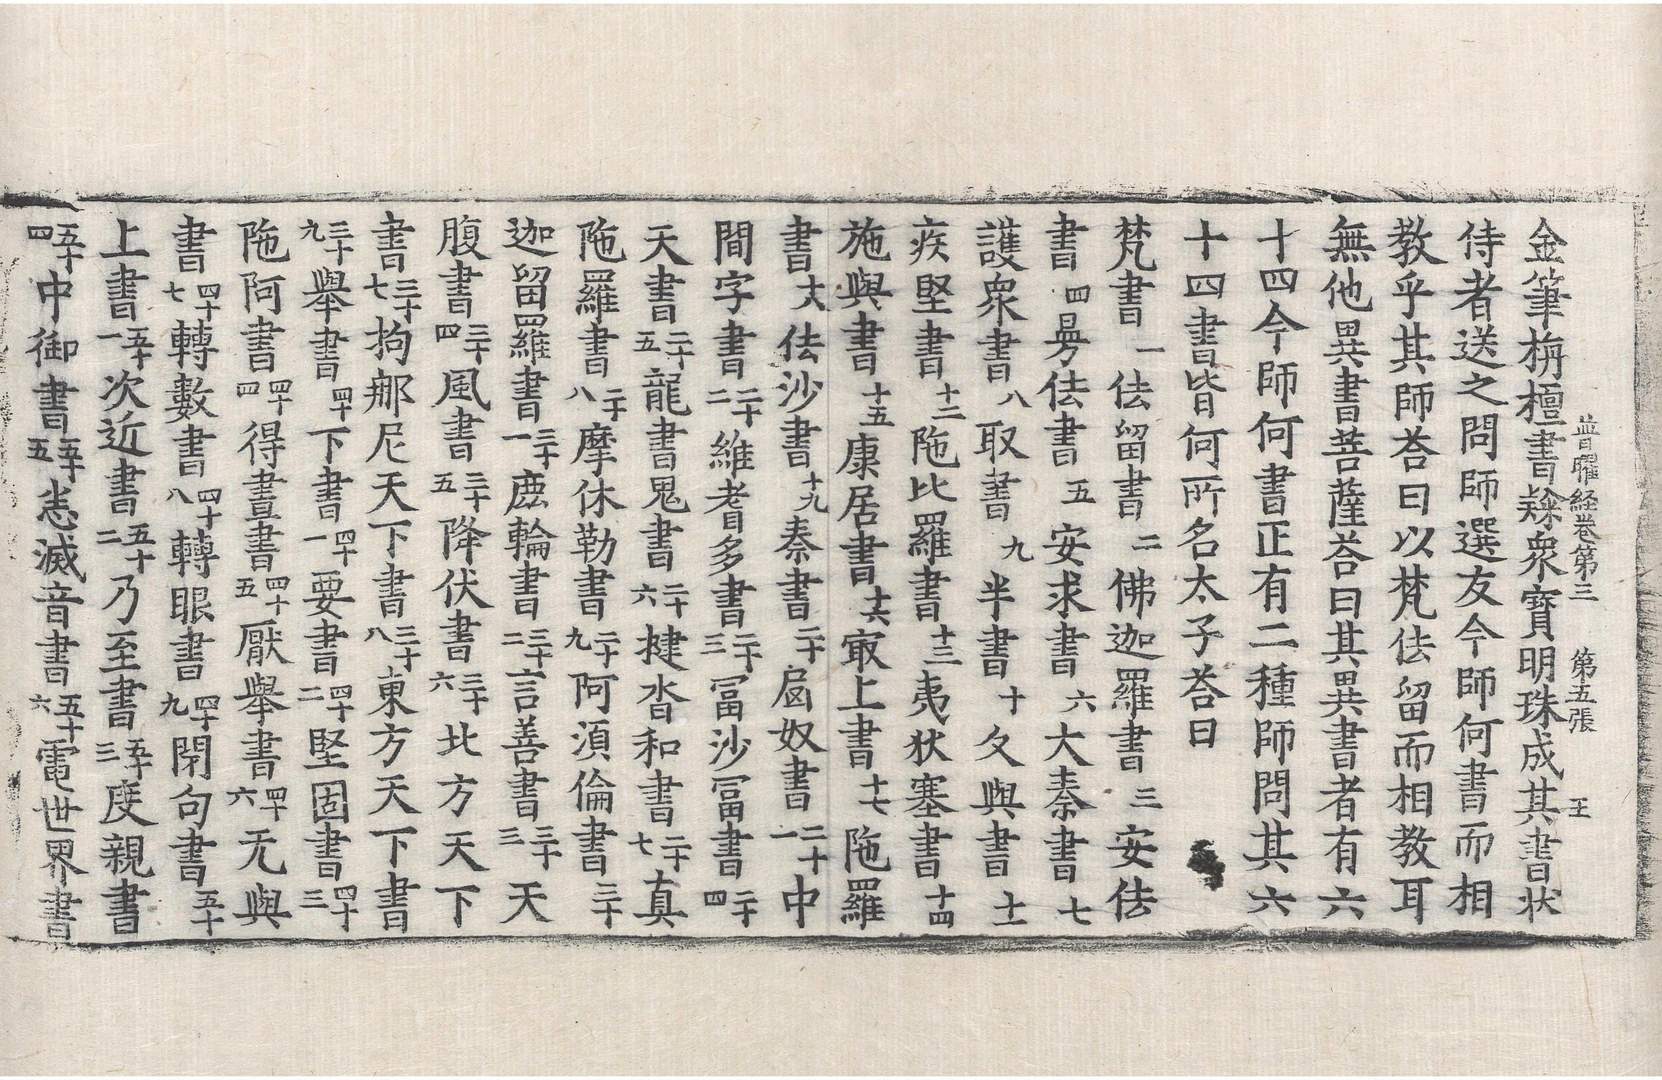 普曜経卷第三　第五張　王
金筆栴檀書𣝛衆寶明珠成其書状
侍者送之問師選友今師何書而相
教乎其師荅曰以梵佉留而相教耳
無他異書菩薩荅曰其異書者有六
十四今師何書正有二種師問其六
十四書皆何所名太子荅曰
梵書一佉留書二佛迦羅書三安佉
書四曼佉書五安求書六大秦書七
護衆書八取書九半書十久與書十一
疾堅書十二陁比羅書十三夷狄塞書十四
施與書十五康居書十六㝡上書十七陁羅
書十八佉沙書十九秦書二十匈奴書二十一中
間字書二十二維耆多書二十三冨沙冨書二十四
天書二十五龍書鬼書二十六揵沓和書二十七真
陁羅書二十八摩休勒書二十九阿湏倫書三十
迦留羅書三十一鹿輪書三十二言善書三十三天
腹書三十四風書三十五降伏書三十六北方天下
書三十七拘那尼天下書三十八東方天下書
三十九舉書四十下書四十一要書四十二堅固書四十三
陁阿書四十四得晝書四十五厭舉書四十六无與
書四十七轉數書四十八轉眼書四十九閇句書五十
上書五十一次近書五十二乃至書五十三度親書
五十四中御書五十五悉滅音書五十六電世界書